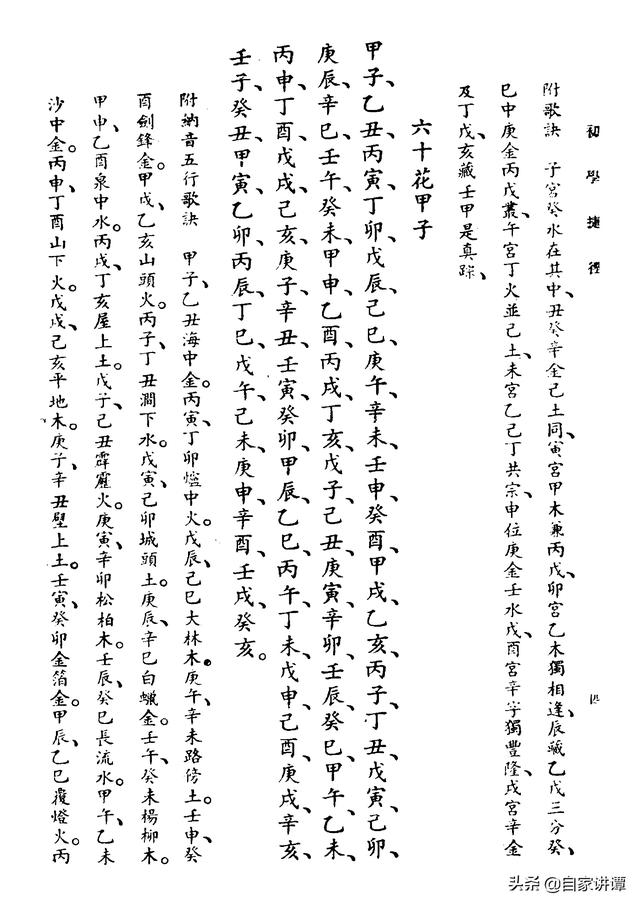 初學捷徑
四
附歌訣　子宮癸水在其中、丑癸辛金己土同、寅宮甲木兼丙戊、卯宮乙木獨相逢、辰藏乙戊三分癸、
巳中庚金丙戊叢、午宮丁火並己土、未宮乙己丁共宗、申位庚金壬水戊、酉宮辛字獨豐隆、戌宮辛金
及丁戊、亥藏壬甲是真踪、
六十花甲子
甲子、乙丑、丙寅、丁卯、戊辰、己巳、庚午、辛未、壬申、癸酉、甲戌、乙亥、丙子、丁丑、戊寅、己卯、
庚辰、辛巳、壬午、癸未、甲申、乙酉、丙戌、丁亥、戊子、己丑、庚寅、辛卯、壬辰、癸巳、甲午、乙未、
丙申、丁酉、戊戌、己亥、庚子、辛丑、壬寅、癸卯、甲辰、乙巳、丙午、丁未、戊申、己酉、庚戌、辛亥、
壬子、癸丑、甲寅、乙卯、丙辰、丁巳、戊午、己未、庚申、辛酉、壬戌、癸亥。
附納音五行歌訣　甲子、乙丑海中金。丙寅、丁卯爐中火。戊辰、己巳大林木。庚午、辛未路傍土。壬申、癸
酉劍鋒金。甲戌、乙亥山頭火。丙子、丁丑澗下水。戊寅、己卯城頭土。庚辰、辛巳白蠟金。壬午、癸未楊柳木。
甲申、乙酉泉中水。丙戌、丁亥屋上土。戊子、己丑霹靂火。庚寅、辛卯松柏木。壬辰、癸巳長流水。甲午、乙未
沙中金。丙申、丁酉山下火。戊戌、己亥平地木。庚子、辛丑壁上土。壬寅、癸卯金箔金。甲辰、乙巳覆燈火。丙
头条 @自家讲谭